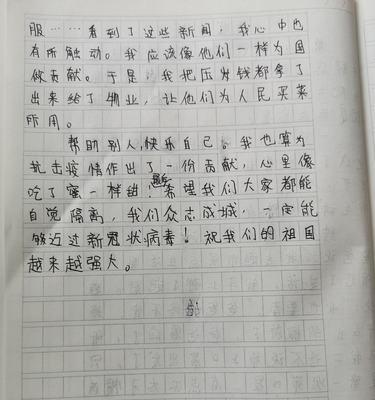 服……看到了这些新闻，我心中也
有所触动。我应该像他们一样为国
做贡献。于是，我把压岁钱都拿了
出来给了物业，让他们为人民买菜
所用。
帮助别人，快乐自己。我也算为
抗击疫情作出了一份贡献，心里像
吃了蜜一样甜！希望我们大家都能
自觉隔离，我们众志成城，一定能
够迈过新冠状病毒！祝我们的祖国
越来越强大。